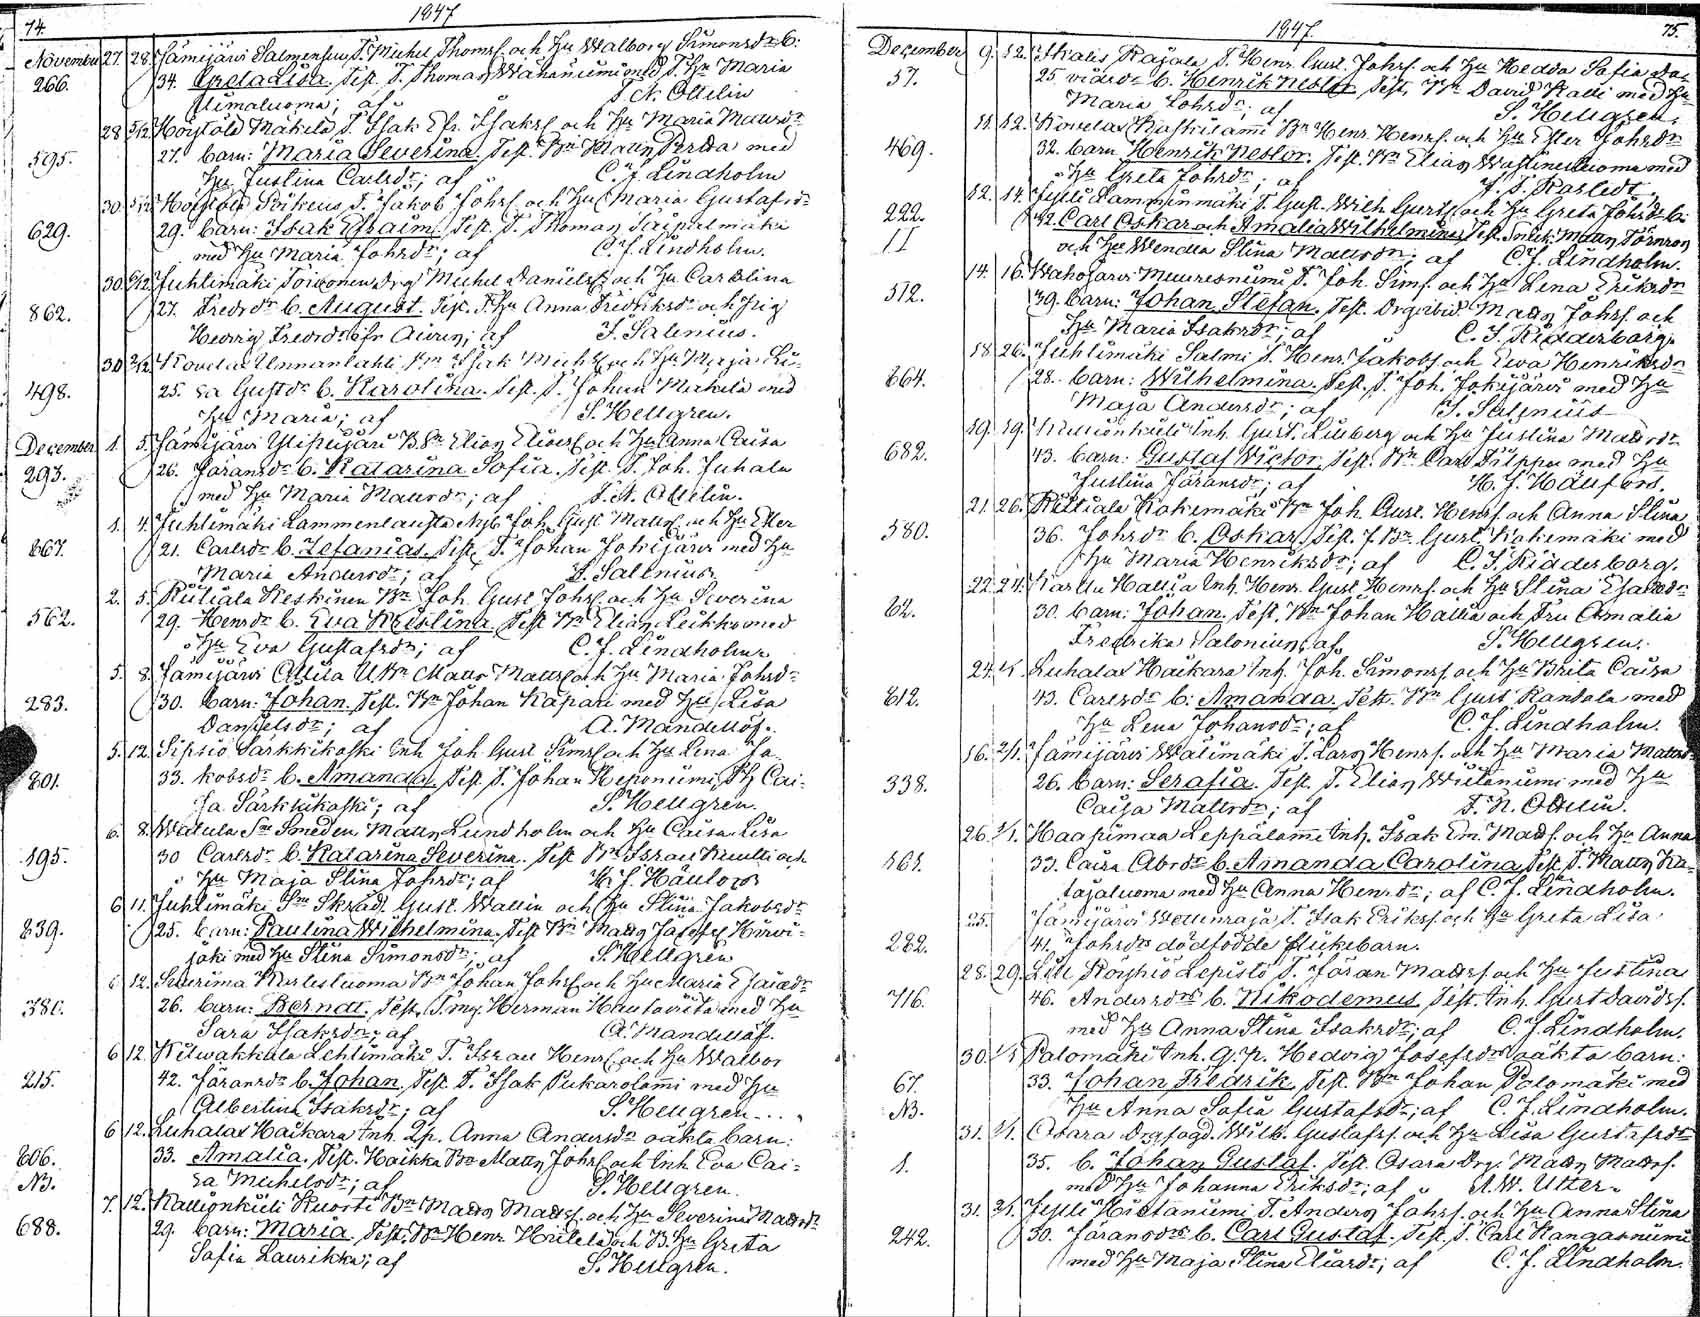 74.
1847
November 27. 28. Jämijärvi Salmensuu T. Michel Thomss. och Hu Walborg Simonsdr b:
266. 34. Greta Lisa. Test. T. Thomas Wähäniemi med T. Hu Maria
Uimaluoma; af T. N. Ottelin
28 5/12 Höytölä Mäkelä T. Isak Efr. Isakss. och Hu Maria Mattsdr
595. 27. barn: Maria Severina. Test. Bn Matts Perttu med
Hu Justina Carlsdr; af C. J. Lindholm
30. 5/12 Höytölä T. Jakob Johss. och Hu Maria Gustafsdr
629. 29. barn: Isak Efraim. Test. T. Thomas Taipalmäki
med Hu Maria Johsdr; af C. J. Lindholm.
30 6/12 Juhtimäki Toivonen Drg Michel Danielss. och Hu Carolina
862. 27. Fredrsdr b. August. Test. T. Hu Anna Fredriksdr och Pig
Hedvig Fredrsdr ifr; af J. Salenius.
30 2/12 Kovelax Unnanlahti Bn Isak Michs. och Hu Maja Li-
498. 25. sa Gustdr b. Karolina. Test. T. Johan Mäkelä med
Hu Maria; af S. Hellgren.
December 1. 5. Jämijärvi Ylipuijari B.Sn Elias Eliaess. och Hu Anna Caisa
293. 26. Göransdr b. Katarina Sofia. Test. T. Joh. Juhala
med Hu Maria Mattsdr; af T. N. Ottelin.
1. 4. Juhtimäki Lammenlausta Nyb. Joh. Gust. Mattss. och Hu Ester
867. 21. Carlsdr b. Zefanias. Test. T. Johan Jokijärvi med Hu
Maria Andersdr; af J. Salenius.
2. 5. Riitiala Keskinen Bn Joh. Gust. Johss. och Hu Severina
562. 29. Henrsdr b. Eva Kristina. Test. Bn Elias Leikko med
Hu Eva Gustafsdr; af C. J. Lindholm.
5. 8. Jämijärvi Attila UBn Matts Mattss. och Hu Maria Johsdr
283. 30. barn: Johan. Test. Bn Johan Kapari med Hu Lisa
Danielsdr; af A. Mandellöf.
5. 12. Sipsiö Särkkikoski Inh. Joh. Gust. Simss. och Hu Lena Ja-
801. 33. kobsdr b. Amanda. Test. T. Johan Reponiemi, Pig Cai-
sa Särkkikoski; af S. Hellgren.
6. 8. Watula Sn Smeden Matts Lundholm och Hu Caisa Lisa
195. 30 Carlsdr b. Katarina Severina. Test. Bn Israel Knutti och
Hu Maja Stina Johsdr; af H. J. Häulors
6 11. Juhtimäki Sn Skräd. Gust. Wallin och Hu Stina Jakobsdr
839. 25. barn: Paulina Wilhelmina. Test. Bn Matts Josefss. Hirvi-
joki med Hu Stina Simonsdr; af S. Hellgren
6 12. Suerima Kurlesluoma Bn Johan Johss. och Hu Maria Esaiædr
381. 26. barn: Berndt. Test. T.mg. Herman Hautaviita med Hu
Sara Isaksdr; af A. Mandellöf.
6 12. Kilwakkala Lehtimäki T. Israel Henrs. och Hu Walbor
215. 42. Göransdr b. Johan. Test. T. Isak Pukarolami med Hu
Albertina Isaksdr; af S. Hellgren
6 12. Luhalax Haikara Inh. Qp. Anna Andersdr oäkta barn:
806. 33. Amalia. Test. Haikka Bn Matts Johss. och Inh. Eva Cai-
NB. sa Michelsdr; af S. Hellgren.
7. 12. Kallionkieli Ruosti Bn Matts Mattss. och Hu Severina Mattsdr
688. 29. barn: Maria. Test. Bn Henr. Hietela och B. Hu Greta
Sofia Laurikka; af S. Hellgren.
1847.
75.
December 9. 12. Ikalis Rajala T. Henr. Gust. Johss. och Hu Hedda Sofia Da-
57. 25 vidsdr b. Henrik Nestor. Test. Bn David Kalli med Hu
Maria Johsdr; af S. Hellgren.
11. 12. Kovelax Kaskilammi Bn Henr. Henrs. och Hu Ester Johsdr
469. 32. barn Henrik Nestor. Test. Bn Elias Wattineluoma med
Hu Greta Johsdr; af
12. 14. Jylli Lamminmäki T. Gust. Wilh. Gusts. och Hu Greta Johsdr b:
222. 42. Carl Oskar och Amalia Wilhelmina. Test. Snick. Matts Törnros
II och Hu Wendla Stina Mattsdr; af C. J. Lindholm.
14. 16. Wahojärvi Muuresniemi T. Joh. Sims. och Hu Lena Eriksdr
512. 39. barn: Johan Stefan. Test. Drg Matts Johss. och
Hu Maria Isaksdr; af C. J. Ridderborg.
18. 26. Juhtimäki Salmi T. Henr. Jakobs. och Ewa Henriksdr
864. 28. barn: Wilhelmina. Test. T. Joh. Jokijärvi med Hu
Maja Andersdr; af J. Salenius
19. 19. Kallionkieli Inh. Gust. Liuberg och Hu Justina Mattsdr
682. 43. barn: Gustaf Victor. Test. Bn Carl Filppu med Hu
Justina Göransdr; af H. J. Häufors.
21. 26. Riitiala Kokemäki Bn Joh. Gust. Henrs. och Anna Stina
580. 36. Johsdr b. Oskar. Test. f. Bn Gust. Kokemäki med
Hu Maria Henriksdr; af C. J. Ridderborg.
22. 24. Kartu Hallia Inh. Henr. Gust. Henrs. och Hu Stina Esaiædr
62. 30. barn: Johan. Test. Bn Johan Hallia och Fru Amalia
Fredrika Salonius; af S. Hellgren.
24. 1/1 Luhalax Haikara Inh. Joh. Simonss. och Hu Brita Caisa
812. 43. Carlsdr b: Amanda. Test. Bn Gust Rantala med
Hu Lena Johansdr; af C. J. Lindholm.
16. 2/1. Jämijärvi Walimäki T. Lars Henrs. och Hu Maria Mattsdr
338. 26. barn: Serafia. Test. T. Elias Wiitaniemi med Hu
Caisa Mattsdr; af T. N. Ottelin.
26. 1/1. Haapimaa Leppälammi Inh. Isak Em. Matts. och Hu Anna
161. 33. Caisa Abrsdr b. Amanda Carolina. Test. T. Matts Ka-
tajaluoma med Hu Anna Henrsdr; af C. J. Lindholm.
25. Jämijärvi Wellinraja T. Isak Erikss. och Hu Greta Lisa
282. 41. Johsdr dödfödde flickebarn.
28. 29. Lilli Röyhiö Lepistö T. Göran Mattss. och Hu Justina
716. 46. Andersdr b. Nikodemus. Test. Inh. Gust Davidss.
med Hu Anna Stina Isaksdr; af C. J. Lindholm.
30. 1/1 Palomäki Inh. Q. p. Hedvig Josefsdr oäkta barn:
67. 33. Johan Fredrik. Test. Bn Johan Palomäki med
NB. Hu Anna Sofia Gustafsdr; af C. J. Lindholm.
31. 2/1. Osara Drgfogd. Wilh. Gustafss. och Hu Lisa Gustafsdr
1. 35. b. Johan Gustaf. Test. Osara Drg. Matts Mattss.
med Hu Johanna Eriksdr; af A. W. Utter.
31. 2/1. Jylli Hietaniemi T. Anders Johss. och Hu Anna Stina
242. 30. Göransdr b. Carl Gustaf. Test. T. Carl Kangasniemi
med Hu Maja Stina Eliædr; af C. J. Lindholm.